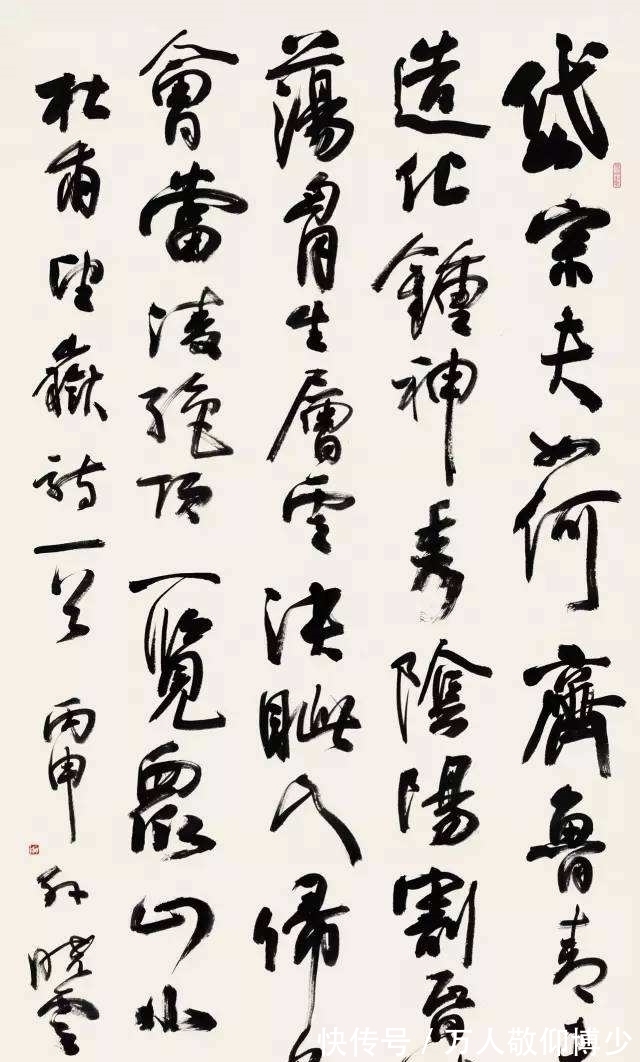 岱宗夫如何齊魯青
造化鍾神秀陰陽割昏
蕩胷生層雲決眦入歸
會當凌絕頂一覽衆山小
杜甫望嶽詩一首 丙申 孫曉雲
快传号 / 万人敬仰博少